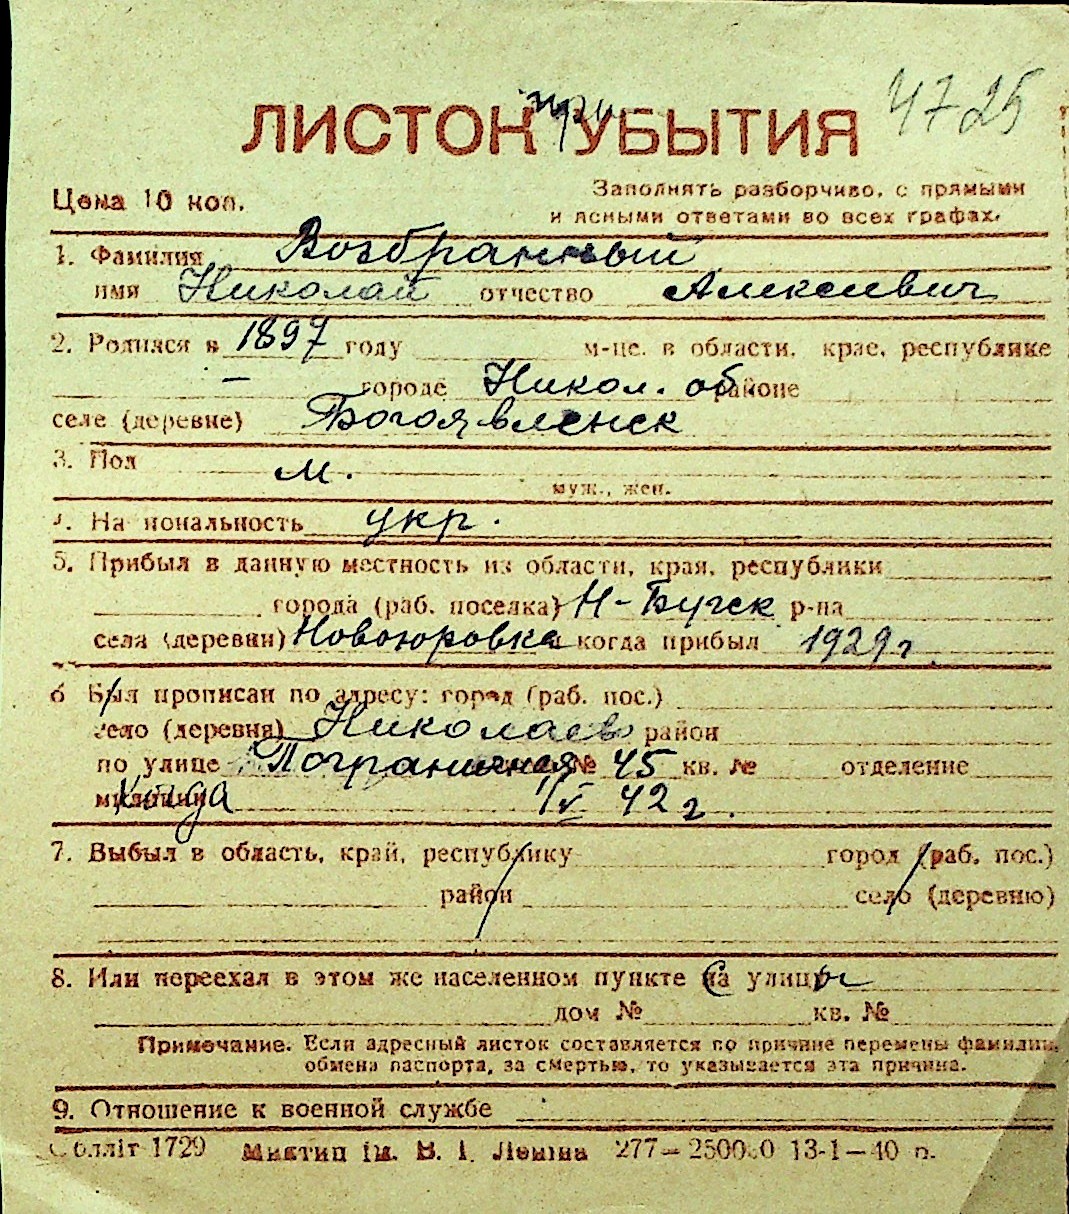 4725
при
ЛИСТОК УБЫТИЯ
Цена 10 коп.
Заполнять разборчиво, с прямыми
и ясными ответами во всех графах.
1. Фамилия Возбранный
имя Николай отчество Алексеевич
2. Родился в 1897 году м-це. в области, крае, республике
— городе Никол. об районе
селе (деревне) Богоявленск
3. Пол м.
муж., жен.
4. Национальность укр.
5. Прибыл в данную местность из области, края, республики
города (раб. поселка) Н-Бугск р-на
села (деревни) Новоюровка когда прибыл 1929 г.
6 Был прописан по адресу: город (раб. пос.)
село (деревня) Николаев район
по улице Пограничная № 45 кв. № отделение
милиции Когда 1/V 42 г.
7. Выбыл в область, край, республику город (раб. пос.)
район село (деревню)
8. Или переехал в этом же населенном пункте на улицы
дом № кв. №
Примечание. Если адресный листок составляется по причине перемены фамилии,
обмена паспорта, за смертью, то указывается эта причина.
9. Отношение к военной службе
Облліт 1729 Миктип ім. В. І. Леніна 277— 13-1—40 р.